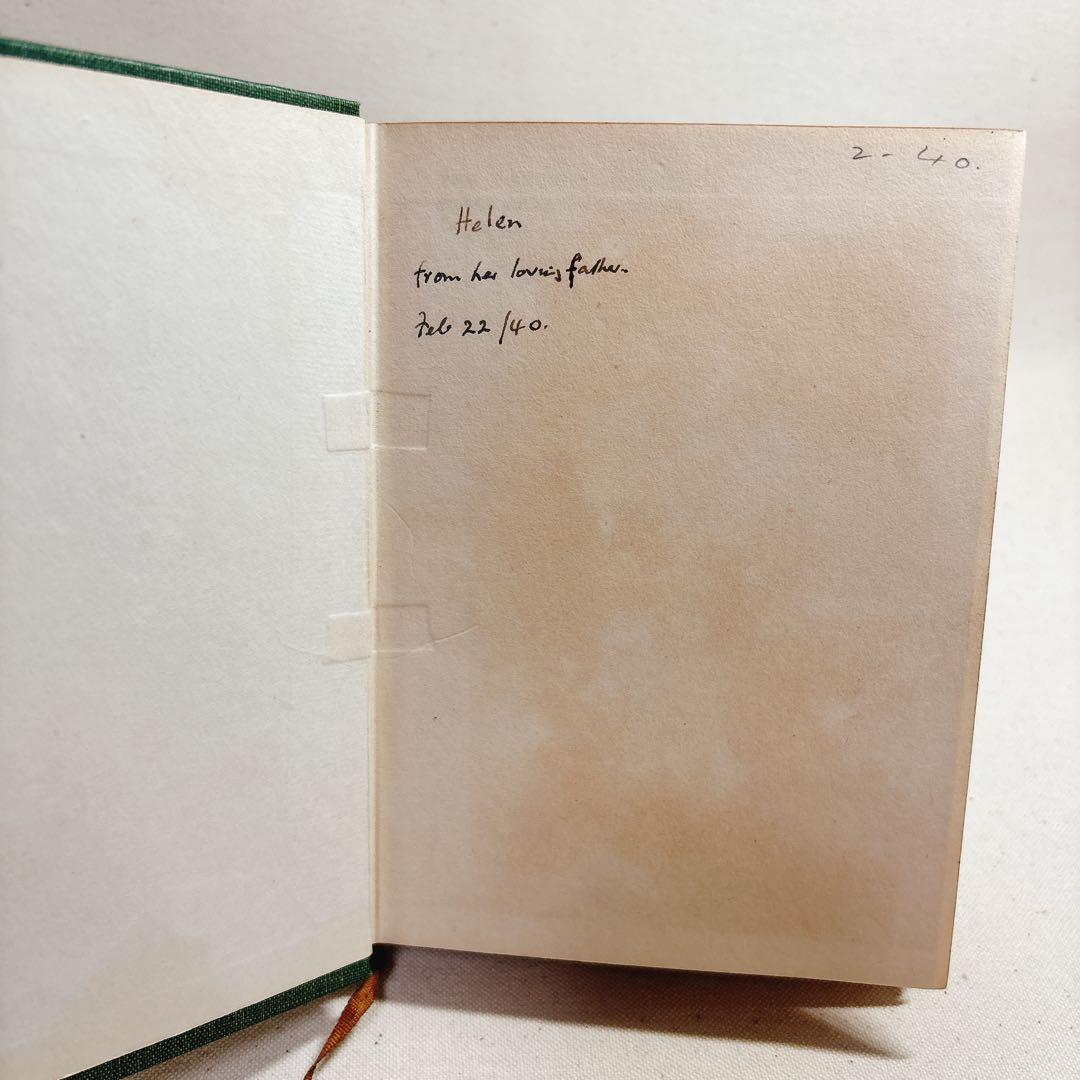 2 - 40.
Helen
from her loving father.
Feb 22/40.